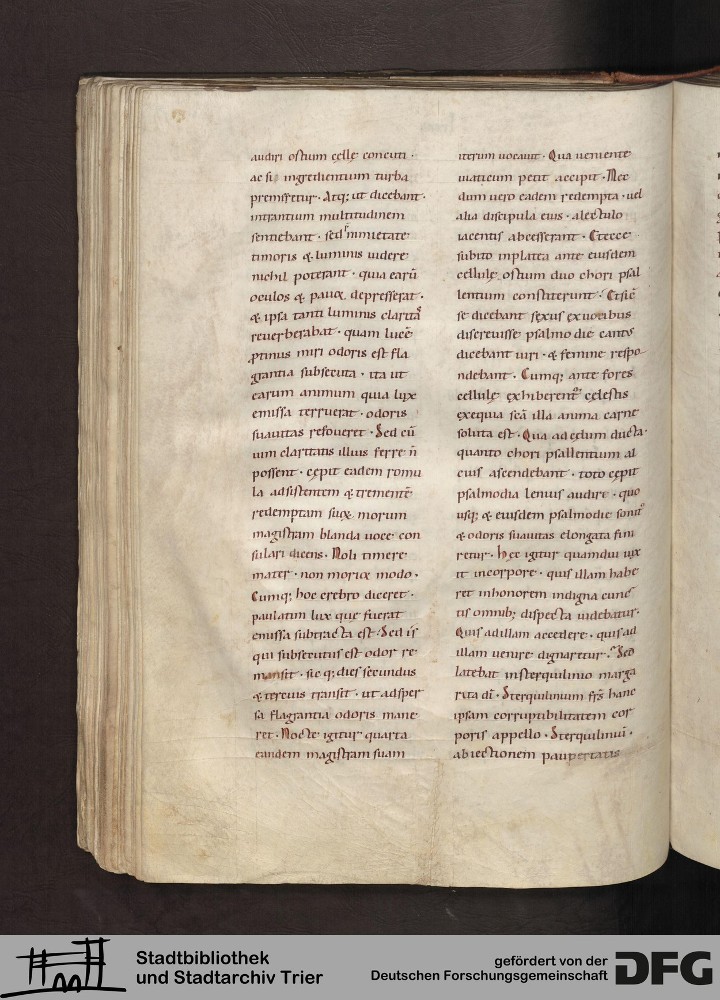 audiri ostium cellę concuti ·
ac si ingredientium turba
premeretur · Atq; ut dicebant ·
intrantium multitudinem
sentiebant · sed inmietate
timoris & luminis uidere
nichil poterant · quia earū
oculos & pauor depresserat ·
& ipsa tanti luminis clarita
reuerberabat · quam lucē
ptinus miri odoris est fla
grantia subsecuta · ita ut
earum animum quia lux
emissa terruerat · odoris
suauitas refoueret · Sed cū
uim claritatis illius ferre n̄
possent · cępit eadem romu
la adsistentem & trementē
redemptam suę morum
magistram blanda uoce con
sulari dicens · Noli timere
mater · non morior modo ·
Cumq; hoc crebro diceret ·
paulatim lux que fuerat
emissa subtracta est · Sed is
qui subsecutus est odor re
mansit · sic q; dies secundus
& tercius transiit · ut adsper
sa flagrantia odoris mane
ret · Nocte igitur quarta
eandem magistram suam
iterum uocauit · Qua ueniente
uiaticum petit accipit · Nec
dum uero eadem redempta · uel
alia discipula eius · a lectulo
iacentis abcesserant · Et ecce
subito in platea ante eiusdem
cellulę ostium duo chori psal
lentium constiterunt · Et sic̄
se dicebant sexus ex uocibus
discreuisse psalmodie cantꝰ
dicebant uiri · & femine respo
ndebant · Cumq; ante fores
cellulę exhiberent cęlestis
exequia sc̄a illa anima carne
soluta est · Qua ad cęlum ducta ·
quanto chori psallentium al
cius ascendebant · toto cępit
psalmodia lenius audire · quo
usq; & eiusdem psalmodie sonit
& odoris suauitas elongata fini
retur · Hęc igitur quamdiu uix
it in corpore · quis illam habe
ret in honorem indigna cunc
tis omnib; dispecta uidebatur ·
Quis ad illam accedere · quis ad
illam uenire dignaretur · Sed
latebat in sterquilinio marga
rita di · Sterquilinium frs hanc
ipsam corruptibilitatem cor
poris appello · Sterquiliniū ·
abiectionem paupertatis
Stadtbibliothek
und Stadtarchiv Trier
gefördert von der
Deutschen Forschungsgemeinschaft
DFG